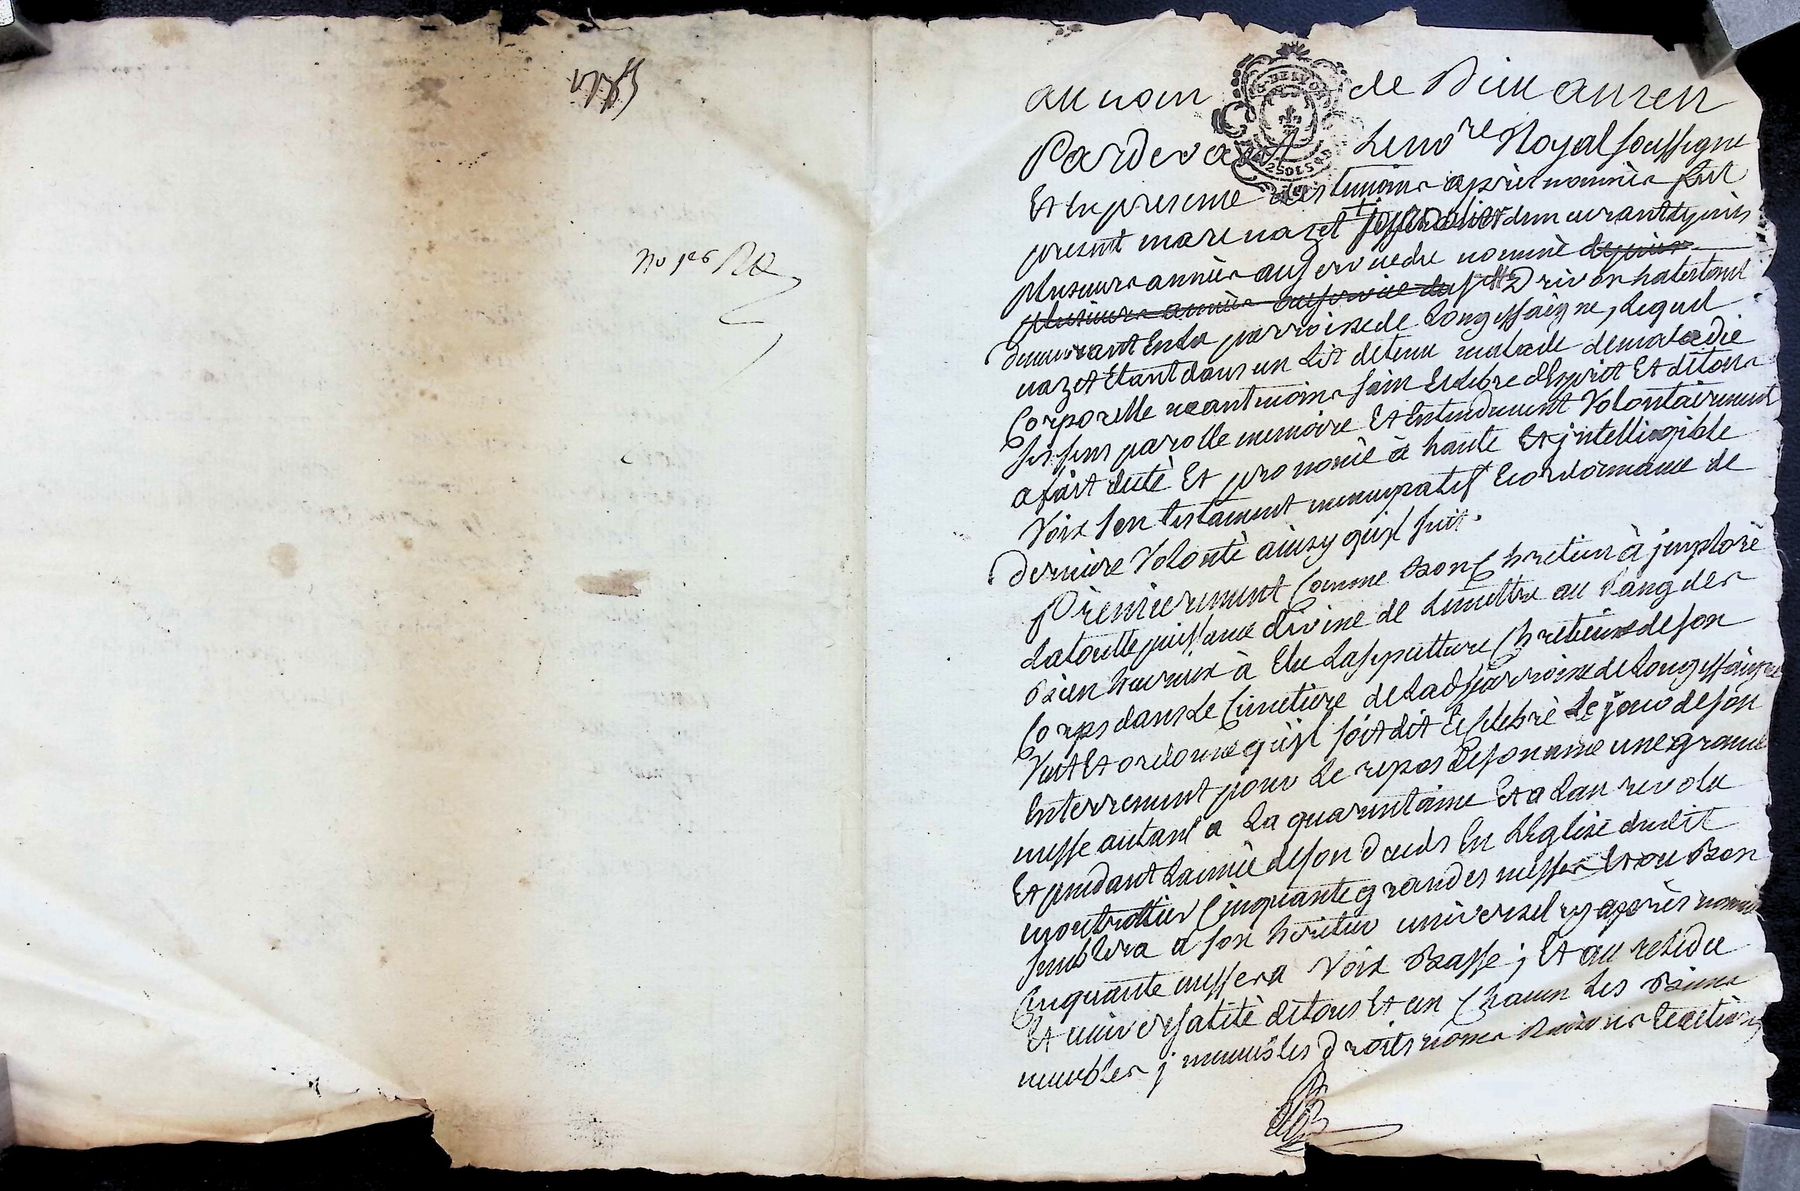 au nom de Dieu amen
Pardevant Le no.re Royal soussigné
Et en presence des temoins après nommés fut
present marc nazet demeurant depuis
plusieurs année au service du nommé depuis
plusieurs année au service du
Demeurant En la parroisse de Longessaigne, Lequel
nazet Etant dans un Lit detenu malade de maladie
Corporelle neantmoins sain Et Libre d'Esprit Et de tous
ses sens parolle memoire Et Entendement Volontairement
a fait dicté Et prononcé à haute Et jntelligible
Voix son testament nuncupatif Et ordonnance de
derniere Volonté ainsy qu'jl suit.
Premierement Comme bon Chretien à jmploré
La toutte puissance divine de Le mettre au Rang des
bien heureux à Elu La sepulture Chretienne de son
Corps dans Le Cimetiere de Lad parroisse de Longessaigne
Veut Et ordonne qu'jl soit dit Et Celebré Le jour de son
Enterrement pour Le repos de son ame une grande
messe autant a La quarantaine Et a L'an revolu
Et pendant L'année de son deuds En L'Eglise dudit
montrottier Cinquante grandes messes Et ou bon
semblera a son heritier universel cy après nommé
Cinquante messes a Voix basse; Et au residu
Et universalité de tous Et un Chacun Les biens
meubles jmmeubles droits noms Raisons Et actions